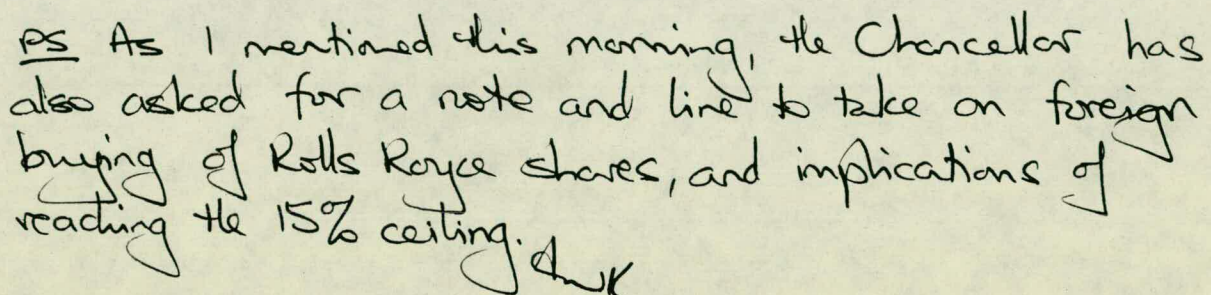 PS As I mentioned this morning, the Chancellor has
also asked for a note and line to take on foreign
buying of Rolls Royce shares, and implications of
reaching the 15% ceiling.